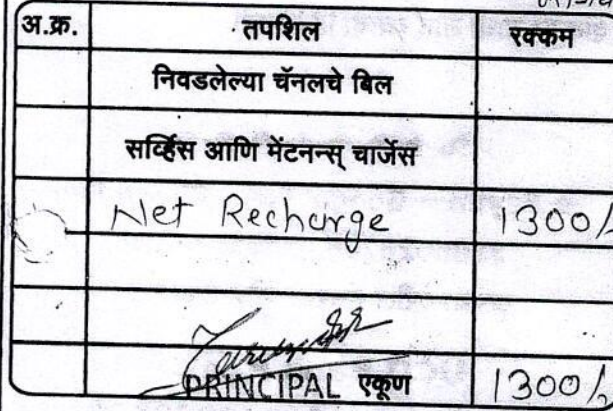 अ.क्र. तपशिल रक्कम
निवडलेल्या चॅनलचे बिल
सर्व्हिस आणि मेंटनन्स् चार्जेस
Net Recharge 1300/-
PRINCIPAL एकूण 1300/-